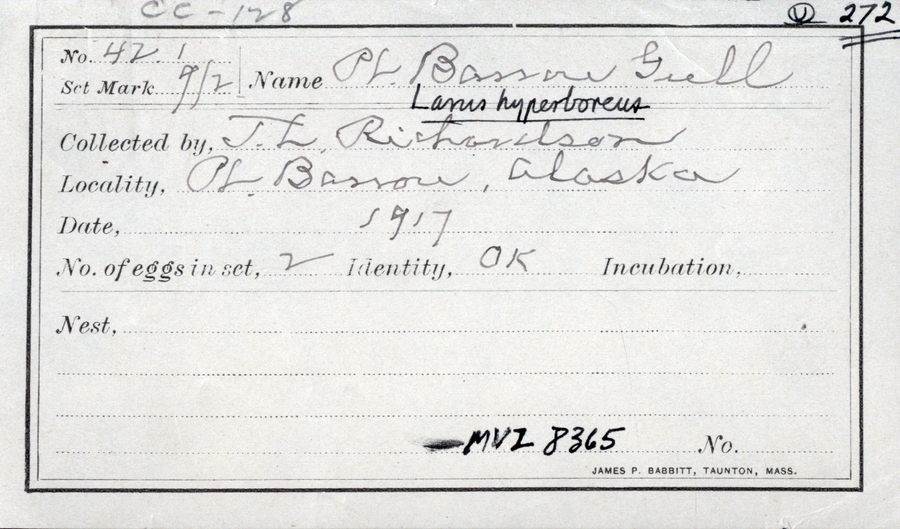 CC-128
U 272
No. 42.1
Set Mark 9/2 Name Pt. Barrow Gull
Larus hyperboreus
Collected by, T. L. Richardson
Locality, Pt. Barrow, Alaska
Date, 1917
No. of eggs in set, 2 Identity, OK Incubation,
Nest,
MVZ 8365 No.
JAMES P. BABBITT, TAUNTON, MASS.